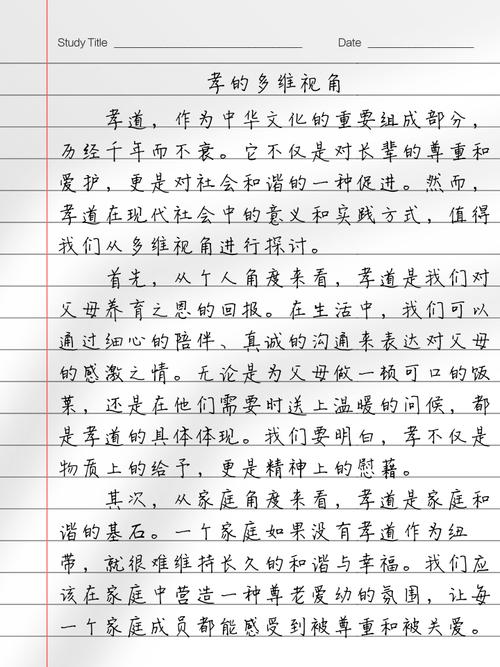 Study Title
Date
孝的多维视角
孝道，作为中华文化的重要组成部分，
历经千年而不衰。它不仅是对长辈的尊重和
爱护，更是对社会和谐的一种促进。然而，
孝道在现代社会中的意义和实践方式，值得
我们从多维视角进行探讨。
首先，从个人角度来看，孝道是我们对
父母养育之恩的回报。在生活中，我们可以
通过细心的陪伴、真诚的沟通来表达对父母
的感激之情。无论是为父母做一顿可口的饭
菜，还是在他们需要时送上温暖的问候，都
是孝道的具体体现。我们要明白，孝不仅是
物质上的给予，更是精神上的慰藉。
其次，从家庭角度来看，孝道是家庭和
谐的基石。一个家庭如果没有孝道作为纽
带，就很难维持长久的和谐与幸福。我们应
该在家庭中营造一种尊老爱幼的氛围，让每
一个家庭成员都能感受到被尊重和被关爱。